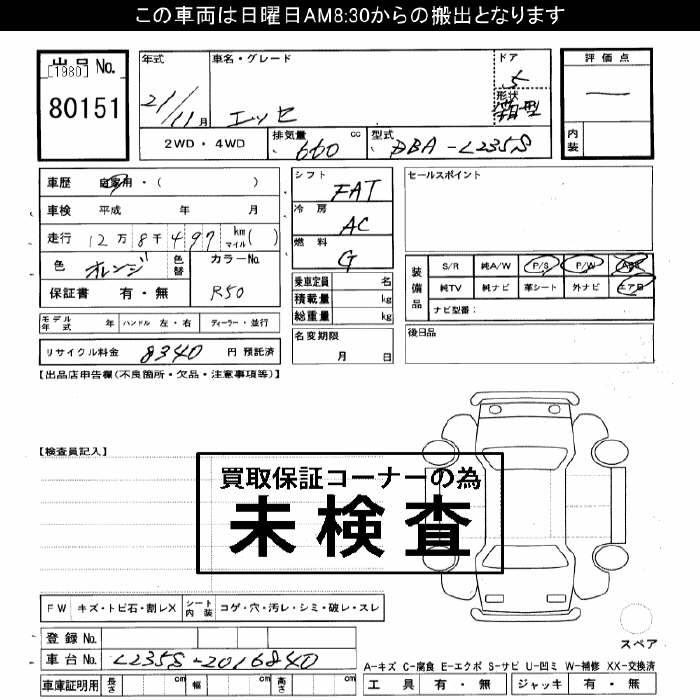 この車両は日曜日AM8:30からの搬出となります
出品No.
[1980]
80151
年式 車名・グレード ドア 評価点
21/11月 エッセ 5 —
形状 箱型
内装
2WD・4WD 排気量 660 cc 型式 DBA-L235S
車歴 自家用・( )
車検 平成 年 月
走行 12万8千497 km マイル( )
色 オレンジ 色替 カラーNo. R50
保証書 有・無
シフト FAT
冷房 AC
燃料 G
乗車定員 名
積載量 kg
総重量 kg
名変期限 月 日
セールスポイント
装備品 S/R 純A/W P/S P/W ABS
純TV 純ナビ 革シート 外ナビ エアB
ナビ型番:
後日品
モデル年式 年 ハンドル 左・右 ディーラー・並行
リサイクル料金 8340 円 預託済
【出品店申告欄(不良箇所・欠品・注意事項等)】
【検査員記入】
買取保証コーナーの為
未検査
FW キズ・トビ石・割レX シート内装 コゲ・穴・汚レ・シミ・破レ・スレ
登録No.
車台No. L235S-2016840
車庫証明用 長さ cm 幅 cm 高さ cm
スペア
A-キズ C-腐食 E-エクボ S-サビ U-凹ミ W-補修 XX-交換済
工具 有・無 ジャッキ 有・無